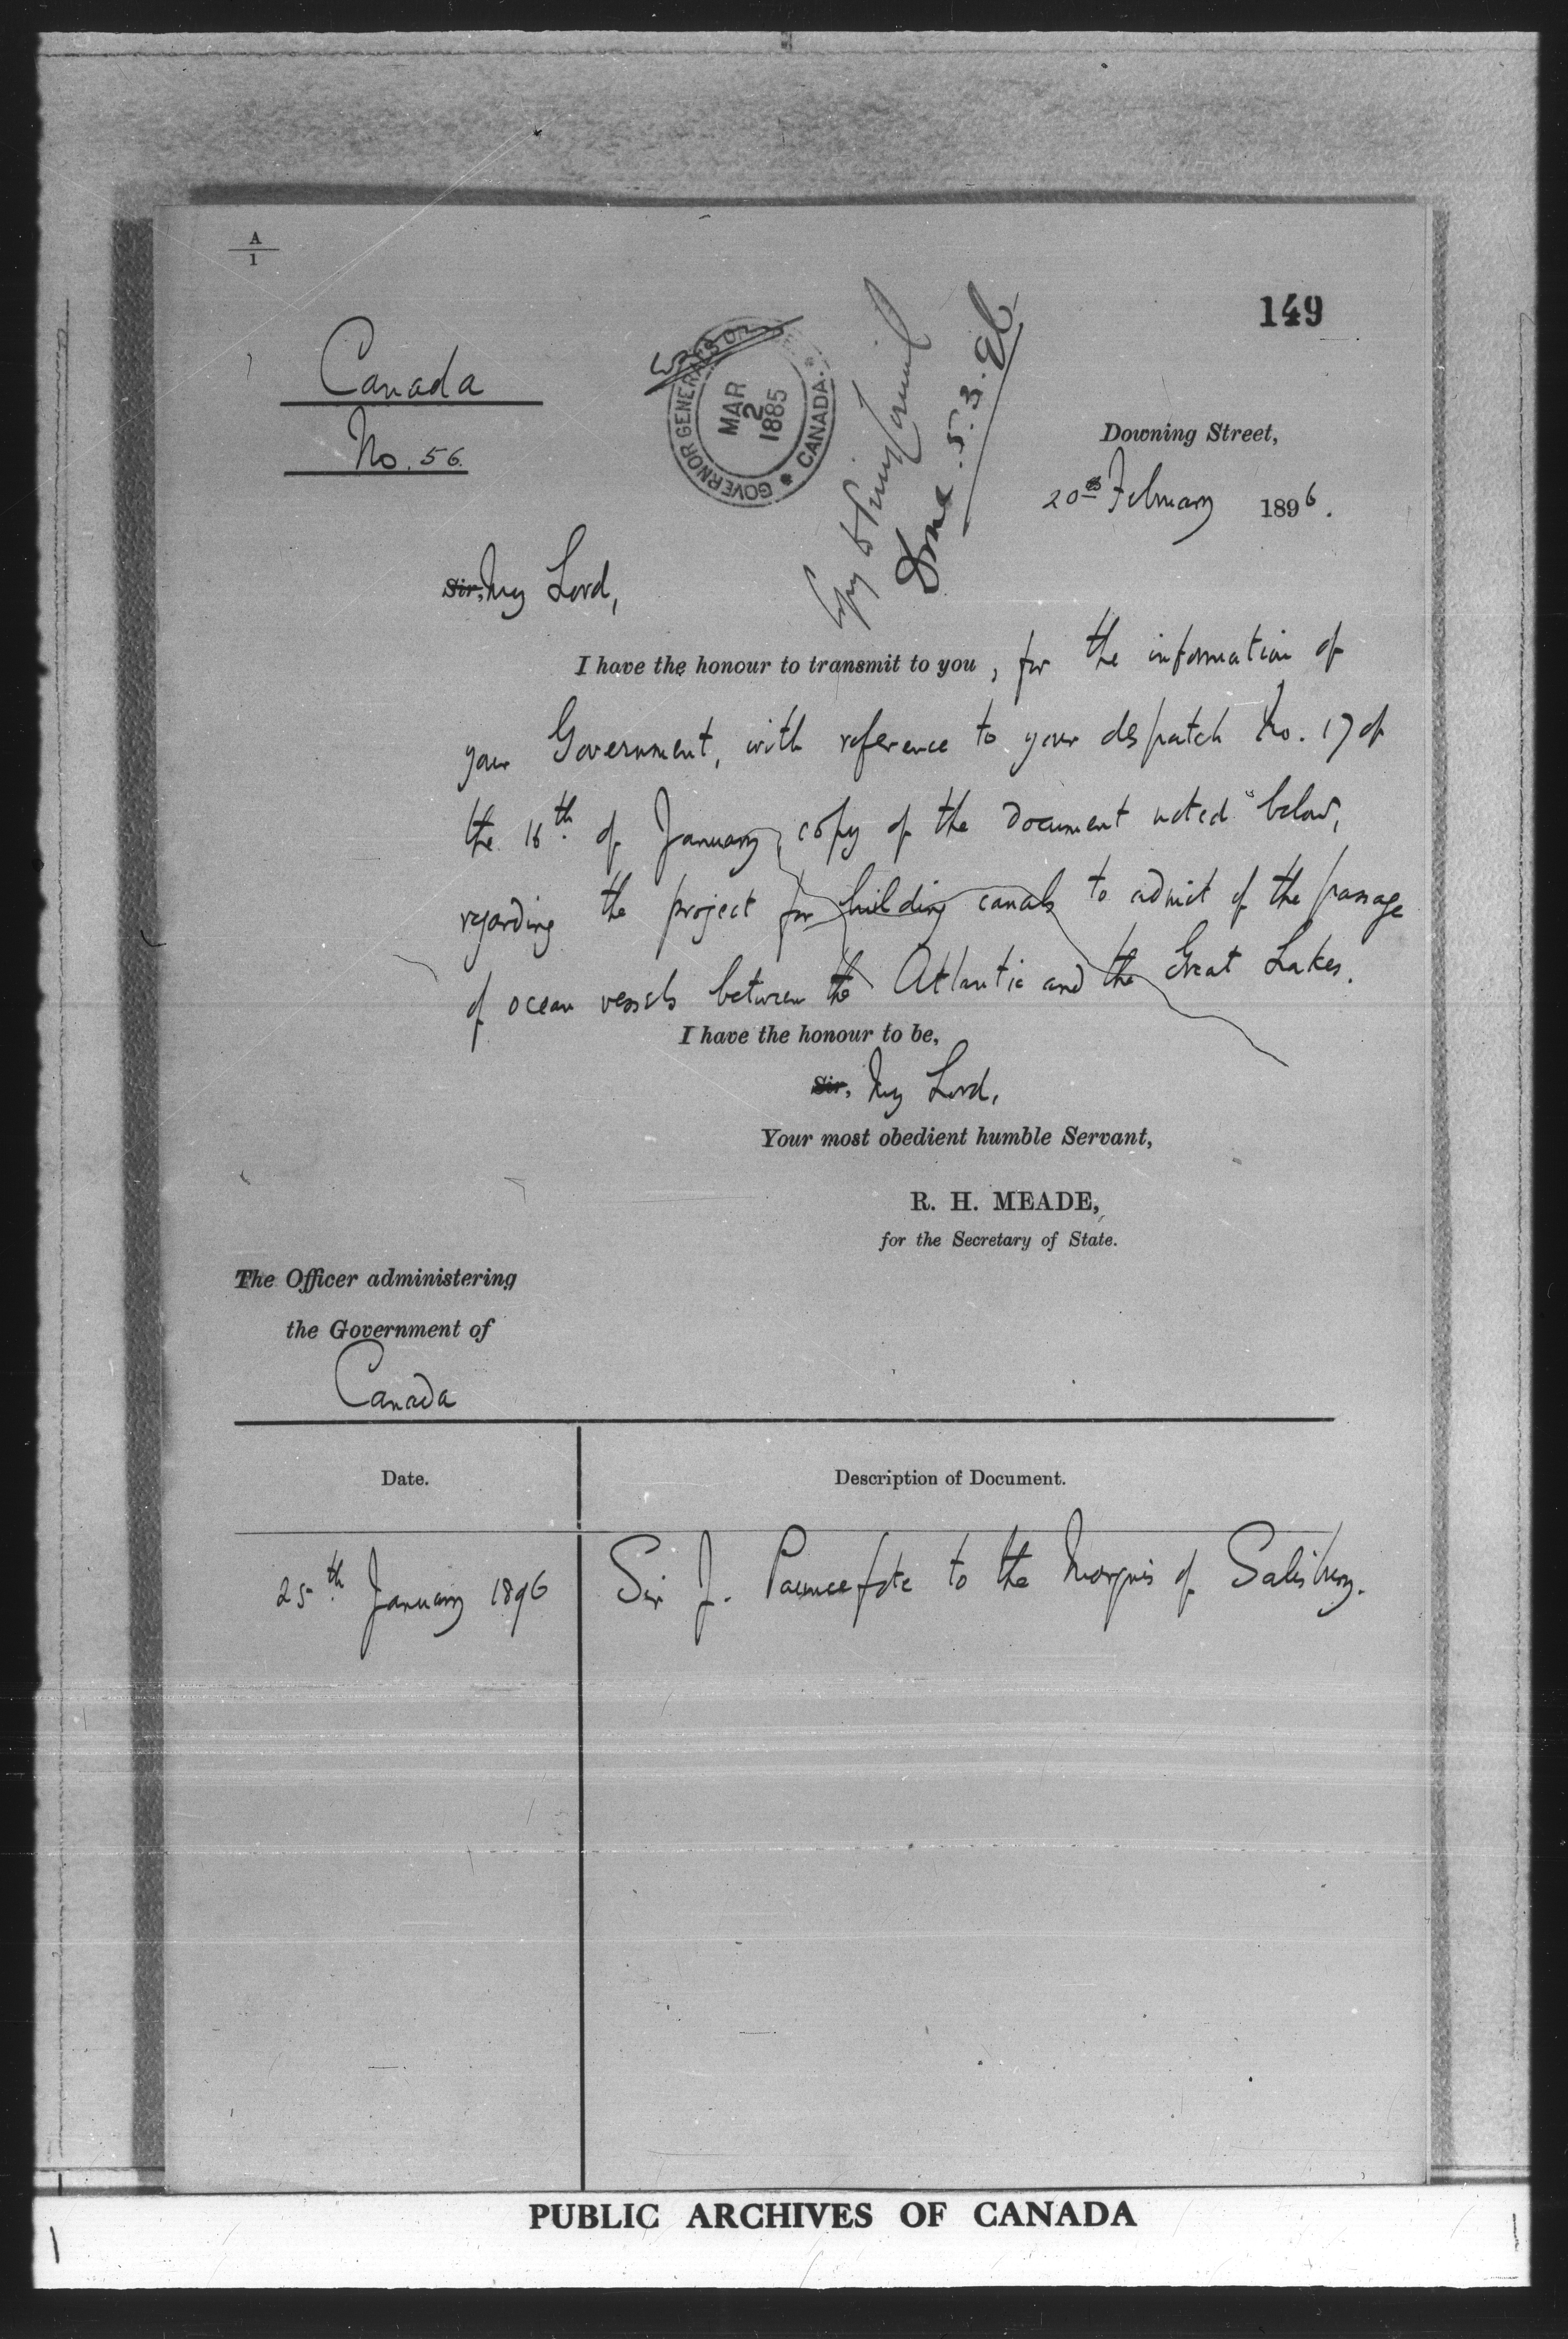 A
1
149
Canada
No. 56.
GOVERNOR GENERAL'S
MAR
2
1885
CANADA.
Copy to Privy Council
Done. 5.3.
Downing Street,
20th February 1896.
Sir, My Lord,
I have the honour to transmit to you, for the information of
your Government, with reference to your despatch No. 17 of
the 16th. of January, copy of the Document noted below,
regarding the project for building canals to admit of the passage
of ocean vessels between the Atlantic and the Great Lakes.
I have the honour to be,
Sir, My Lord,
Your most obedient humble Servant,
R. H. MEADE,
for the Secretary of State.
The Officer administering
the Government of
Canada
Date.
Description of Document.
25th. January 1896
Sir J. Pauncefote to the Marquis of Salisbury.
PUBLIC ARCHIVES OF CANADA